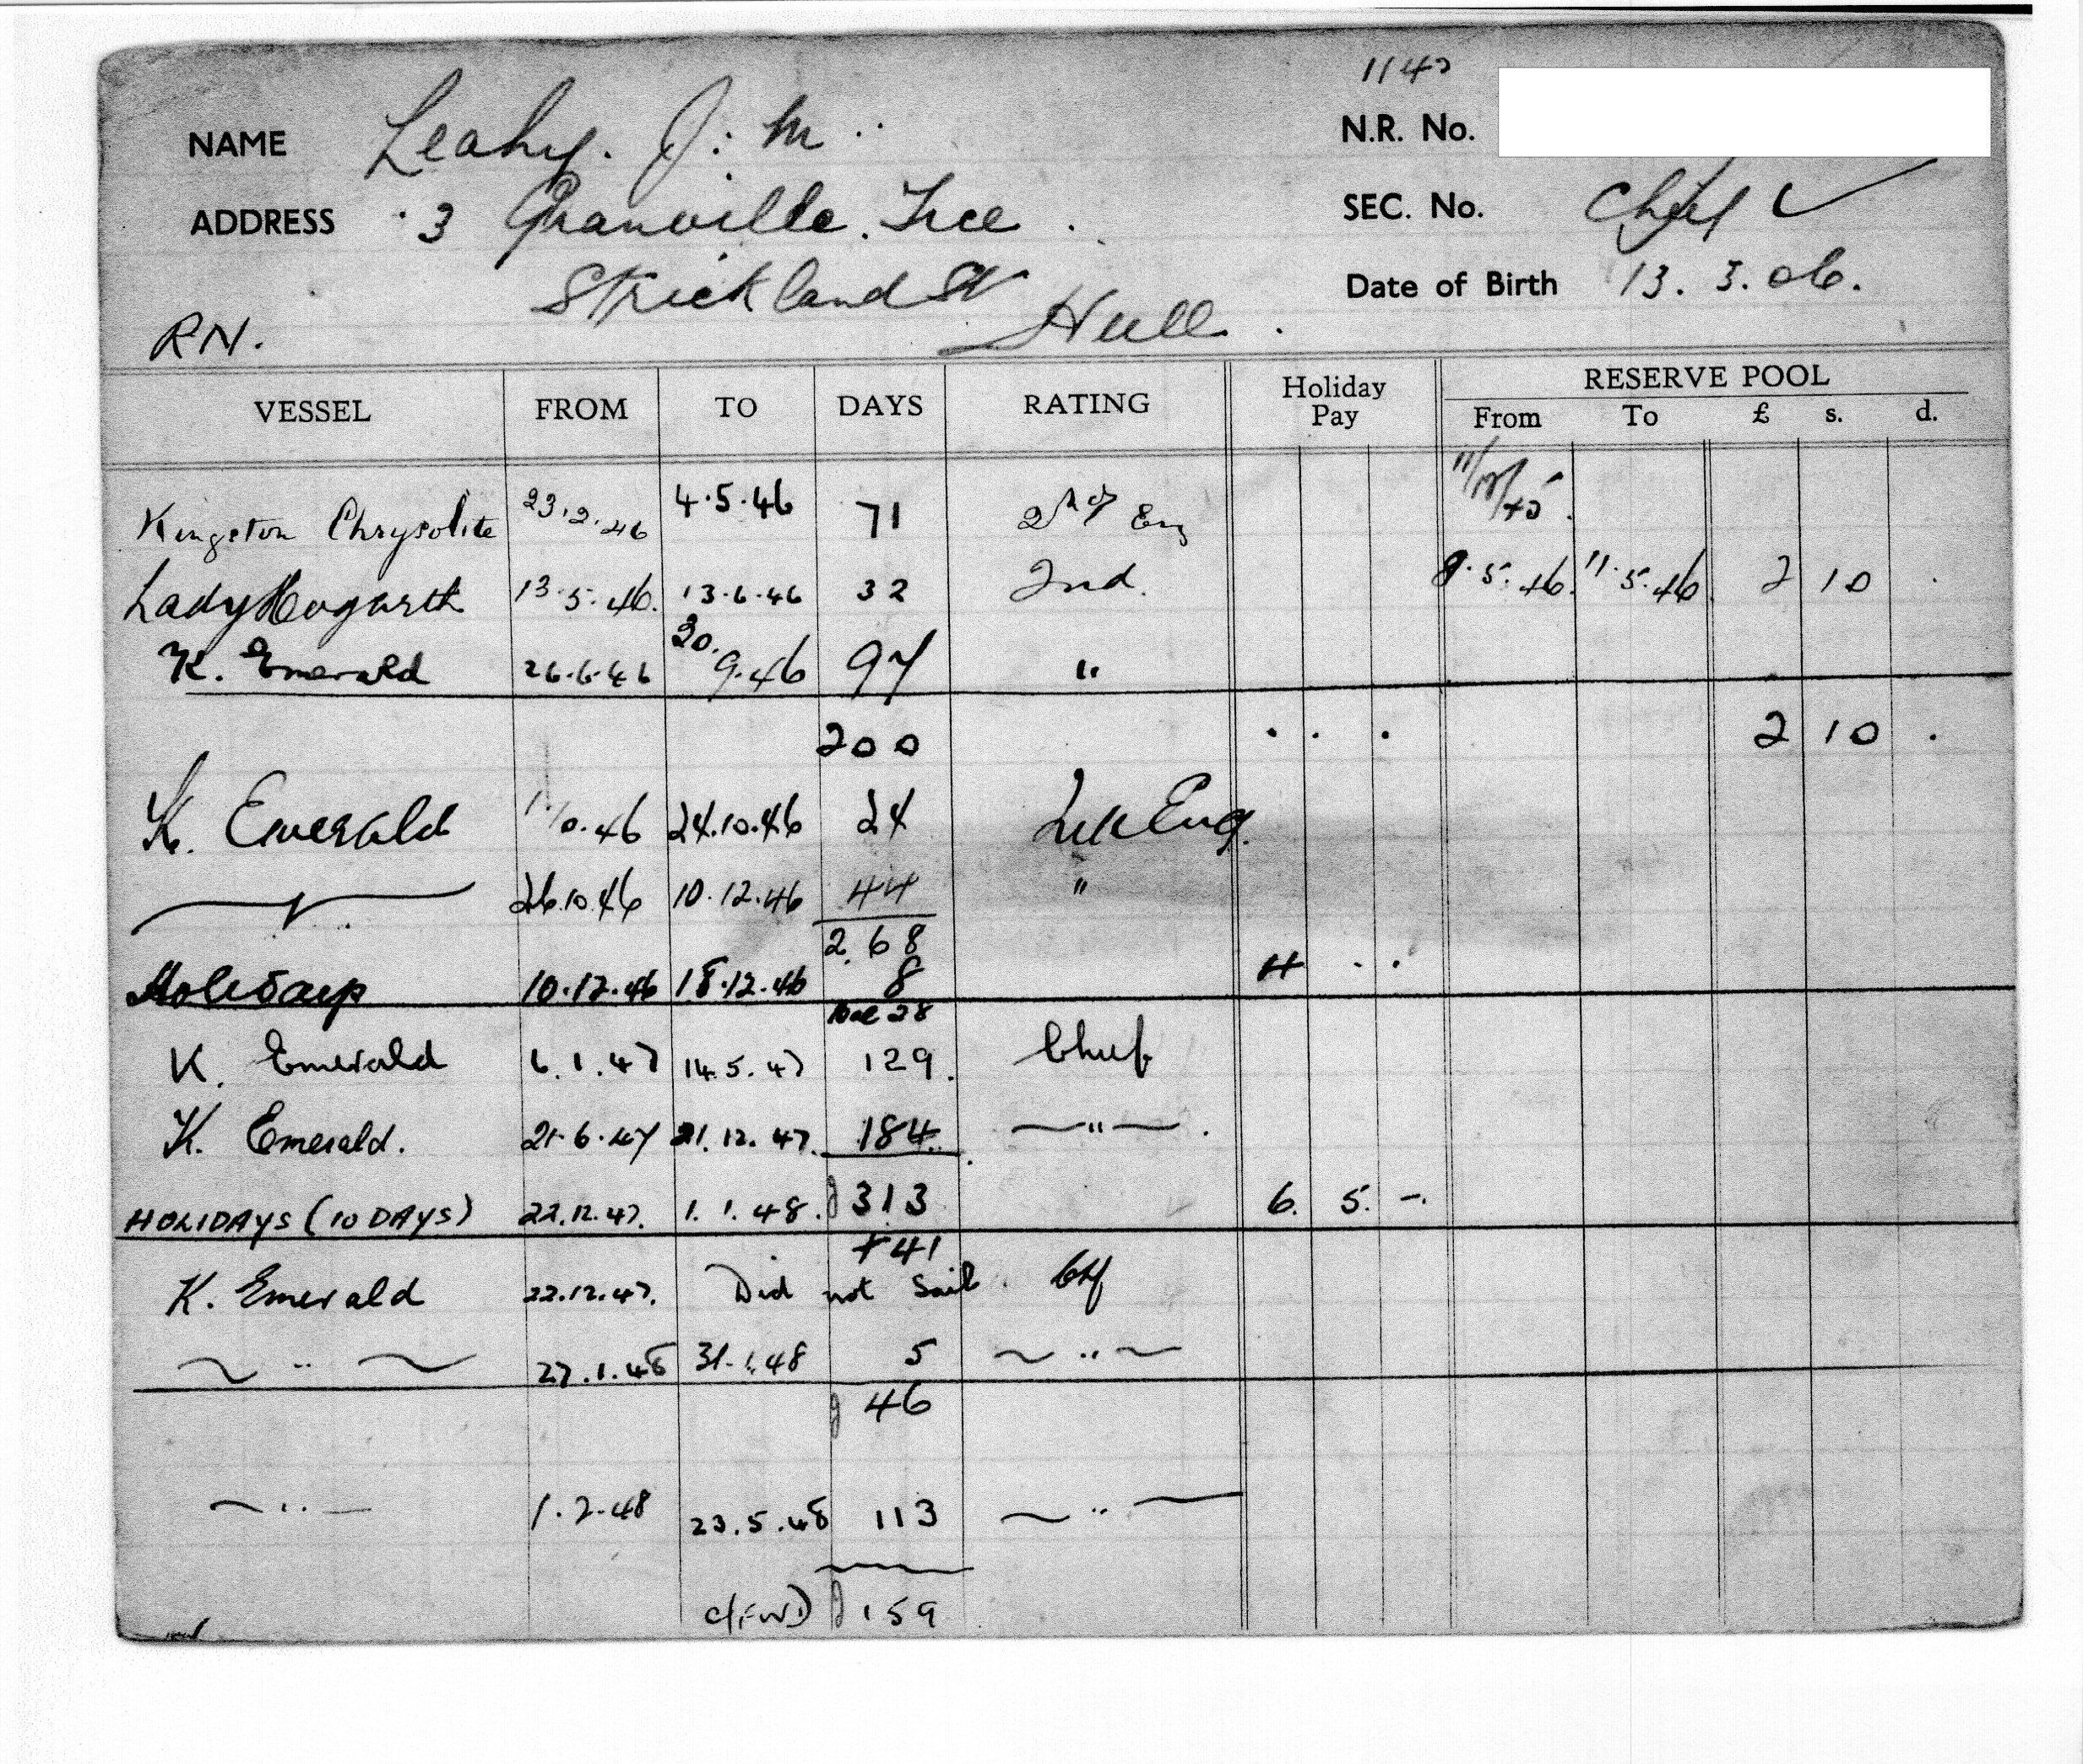 1147
NAME Leahy. J. M.
N.R. No.
ADDRESS 3 Granville Tce.
SEC. No. Chief
Strickland St
Date of Birth 13. 3. 06.
Hull.
RN.
VESSEL FROM TO DAYS RATING Holiday Pay RESERVE POOL From To £ s. d.
Kingston Chrysolite 23.2.46 4.5.46 71 2nd Eng
Lady Hogarth 13.5.46. 13.6.46 32 2nd. 8.5.46. 11.5.46. 2 10 .
K. Emerald 26.6.46 30.9.46 97 "
200 . . . 2 10 .
K. Emerald 1.10.46 24.10.46 24 Eng.
" 26.10.46 10.12.46 44 "
268
Holidays 10.12.46 18.12.46 8 4 . .
Bal 28
K. Emerald 6.1.47 14.5.47 129. Chief
K. Emerald. 21.6.47 21.12.47. 184. — " — .
HOLIDAYS (10 DAYS) 22.12.47. 1.1.48. 313 6. 5. -.
+41
K. Emerald 22.12.47. Did not Sail. Chf
~ " ~ 27.1.48 31.1.48 5 ~ " ~
46
~ " — 1.2.48 23.5.48 113 ~ " —
C/FWD 159